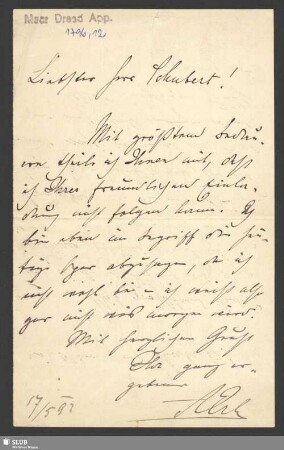 Mscr. Dresd. App.
1796,12
Liebster Herr Schubert!
Mit größtem Bedau-
ern theile ich Ihnen mit, daß
ich Ihrer freundlichen Einla-
dung nicht folgen kann. Ich
bin eben im Begriff die heu-
tige Oper abzusagen, da ich
nicht wohl bin – ich weiß also
gar nicht was morgen wird.
Mit herzlichem Gruß
Ihr ganz er-
gebener
17/5 93
SLUB